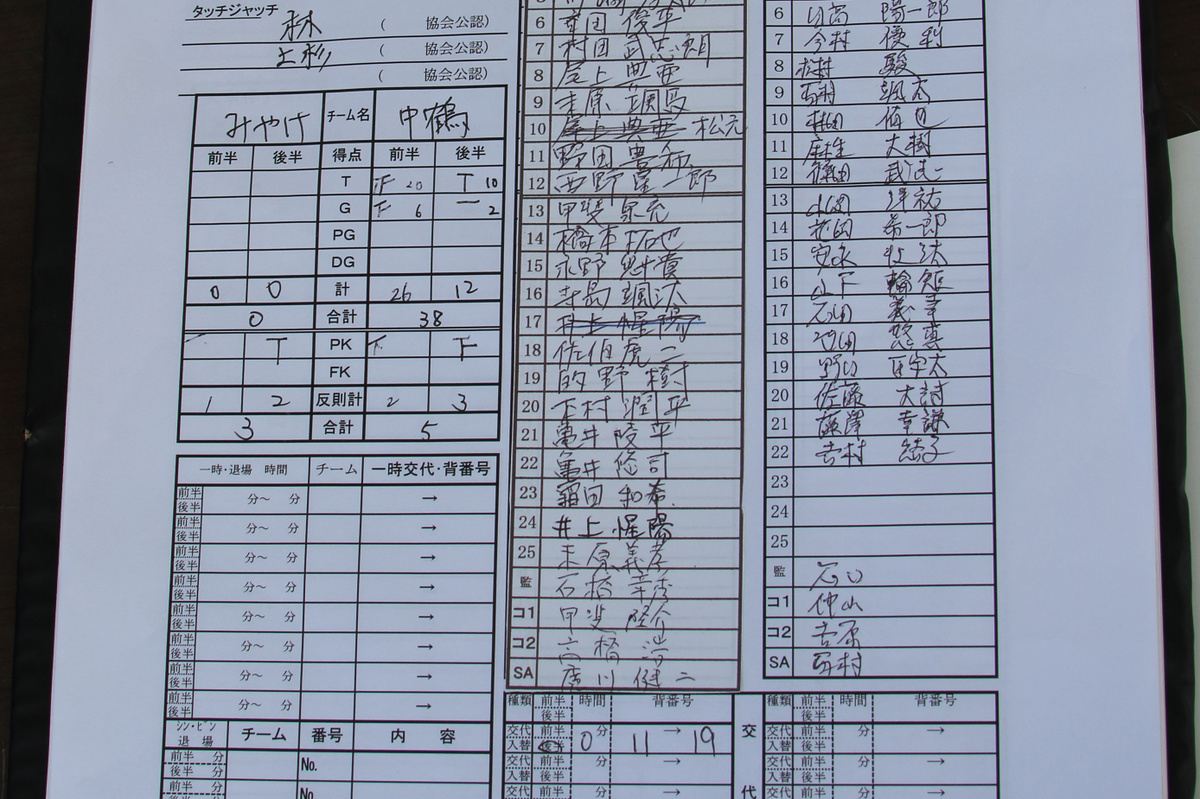 タッチジャッチ
林 ( 協会公認)
上杉 ( 協会公認)
( 協会公認)
みやけ チーム名 中鶴
前半 後半 得点 前半 後半
T 正 20 T 10
G 下 6 一 2
PG
DG
0 0 計 26 12
0 合計 38
一 T PK T 下
FK
1 2 反則計 2 3
3 合計 5
一時・退場 時間 チーム 一時交代・背番号
前半 後半 分〜 分 →
前半 後半 分〜 分 →
前半 後半 分〜 分 →
前半 後半 分〜 分 →
前半 後半 分〜 分 →
前半 後半 分〜 分 →
前半 後半 分〜 分 →
前半 後半 分〜 分 →
シン・ビン 退場 チーム 番号 内 容
前半 分 後半 分 No.
前半 分 後半 No.
6 俊平
7 村田 武志朗
8 尾上 典亜
9 末原 颯馬
10 尾上 典亜 松元
11 野田 豊
12 西野 蓮一郎
13 甲斐 泉充
14 橋本 拓也
15 永野 魁貴
16 寺島 颯汰
17 井上 惺陽
18 佐伯 虎二
19 的野 樹
20 下村 潤平
21 亀井 陵平
22 亀井 悠司
23 稲田 和希
24 井上 惺陽
25 末原 義孝
監 石橋 幸秀
コ1 甲斐 隆介
コ2 高橋 浩
SA 廣川 健二
6 陽一郎
7 今村 優利
8 松村 駿
9 颯太
10
11 麻生 大樹
12 篠田
13 洋祐
14 花田 希一郎
15 安永
16 山下 輪矩
17 石田 義幸
18 池田 悠真
19 野口
20 佐藤 大詩
21 藤澤 幸謙
22 吉村 結子
23
24
25
監 石山
コ1 仲山
コ2 吉原
SA 西村
種類 前半 後半 時間 背番号
交代 入替 前半 後半 0 分 11 → 19
交代 入替 前半 後半 分 →
交代 前半 分 →
交 代
種類 前半 後半 時間 背番号
交代 入替 前半 後半 分 →
交代 入替 前半 後半 分 →
交代 前半 分 →